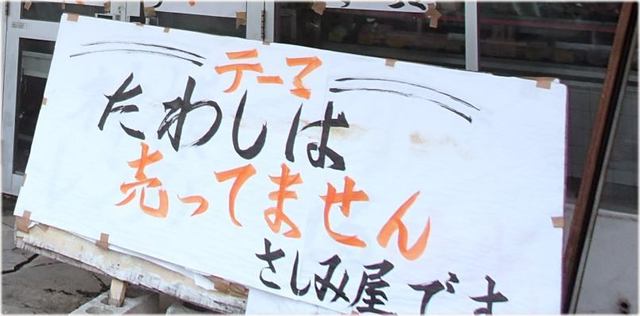 テーマ
たわしは
売ってません
さしみ屋です